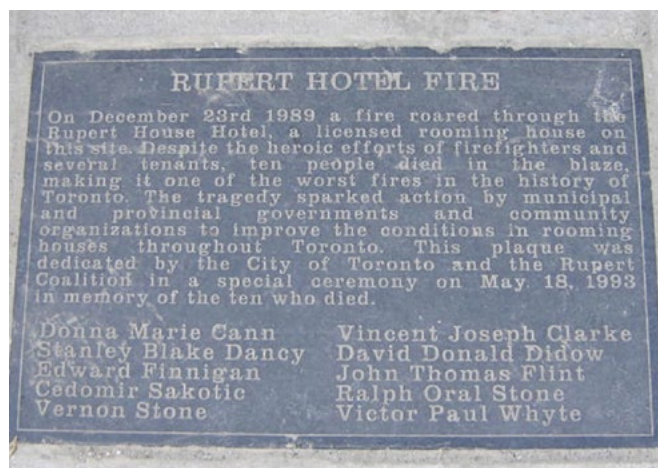 RUPERT HOTEL FIRE
On December 23rd 1989 a fire roared through the
Rupert House Hotel, a licensed rooming house on
this site. Despite the heroic efforts of firefighters and
several tenants, ten people died in the blaze,
making it one of the worst fires in the history of
Toronto. The tragedy sparked action by municipal
and provincial governments and community
organizations to improve the conditions in rooming
houses throughout Toronto. This plaque was
dedicated by the City of Toronto and the Rupert
Coalition in a special ceremony on May 18, 1993
in memory of the ten who died.
Donna Marie Cann
Stanley Blake Dancy
Edward Finnigan
Cedomir Sakotic
Vernon Stone
Vincent Joseph Clarke
David Donald Didow
John Thomas Flint
Ralph Oral Stone
Victor Paul Whyte